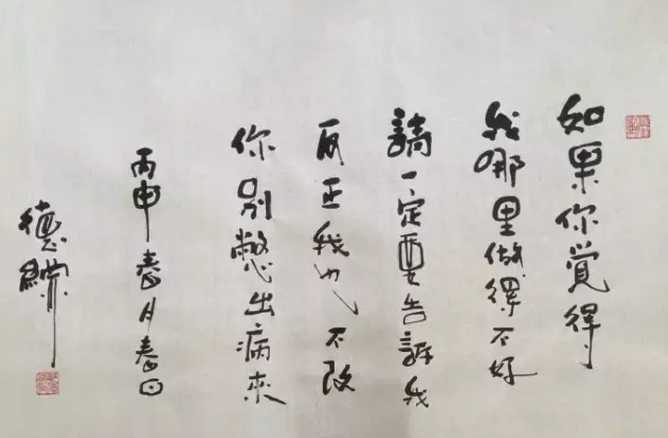 如果你覺得
我哪里做得不好
請一定要告訴我
反正我也不改
你别憋出病來
丙申春月春日
德綱